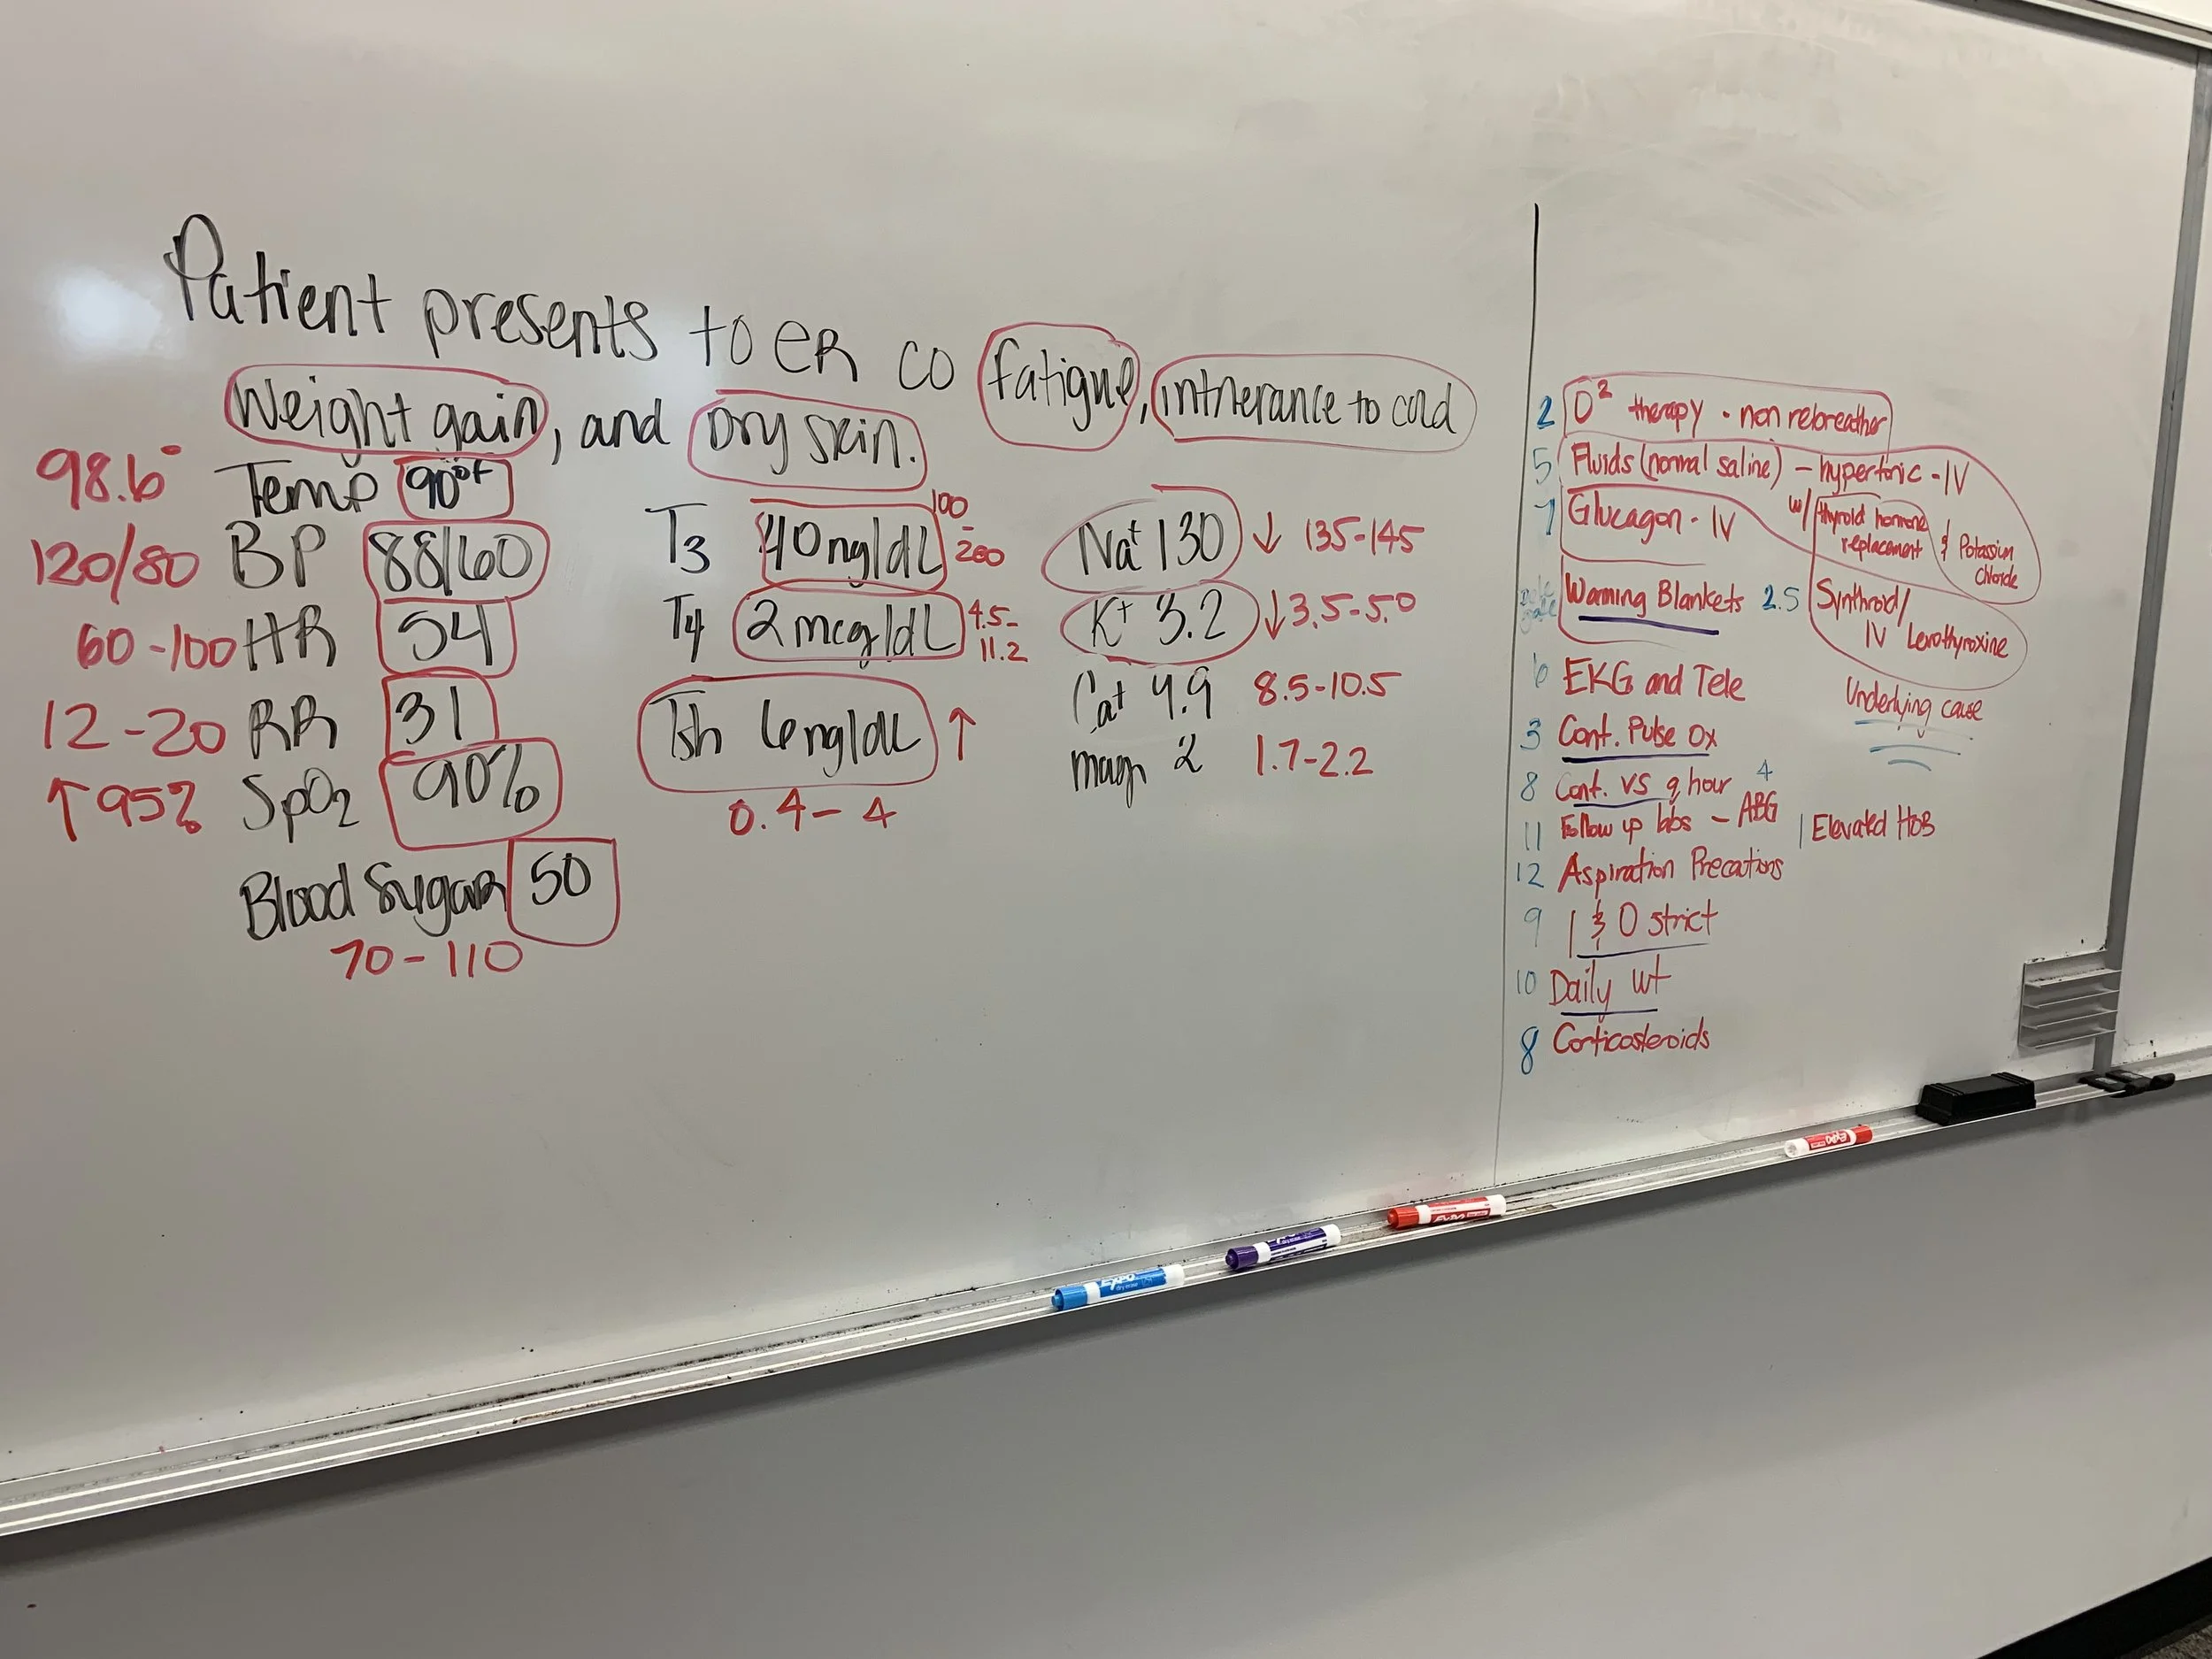 Patient presents to ER co fatigue, intnerance to cold
Weight gain, and Dry skin.
98.6° Temp 90°F
120/80 BP 88/60
60-100 HR 54
12-20 RR 31
↑95% SpO2 90%
Blood Sugar 50
70-110
T3 40ng/dL 100-200
T4 2mcg/dL 4.5-11.2
Tsh 6ng/dL ↑
0.4-4
Na+ 130 ↓ 135-145
K+ 3.2 ↓ 3.5-5.0
Ca+ 4.9 8.5-10.5
magn 2 1.7-2.2
2 O² therapy · non rebreather
5 Fluids (normal saline) - hypertonic - IV
& Potassium Chloride
7 Glucagon - IV
w/ thyroid hormone replacement
Warming Blankets 2.5
Synthroid/
IV Levothyroxine
Underlying cause
6 EKG and Tele
3 Cont. Pulse Ox
8 Cont. VS q hour 4
11 Follow up labs - ABG | Elevated HOB
12 Aspiration Precations
9 I & O strict
10 Daily wt
8 Corticosteroids
EXPO
EXPO
EXPO